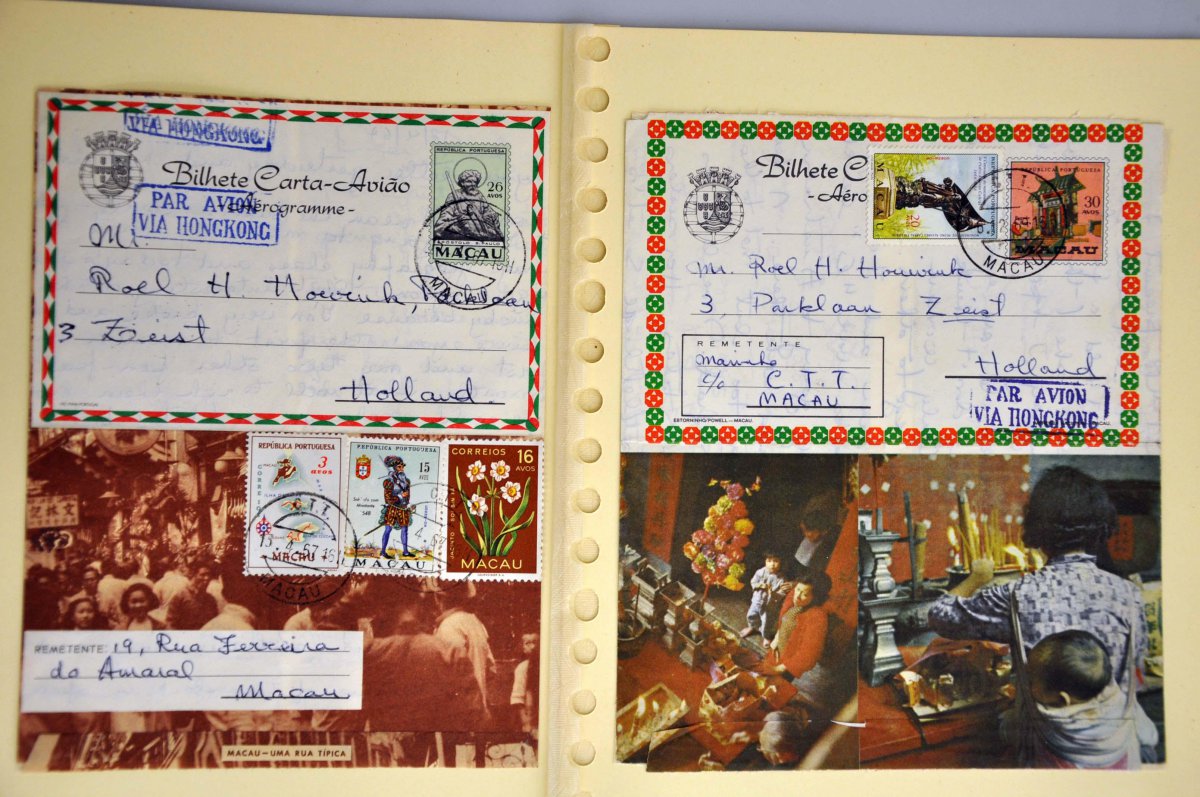 VIA HONGKONG
Bilhete Carta-Avião
- Aérogramme -
PAR AVION
VIA HONGKONG
REPÚBLICA PORTUGUESA
26
AVOS
APOSTOLO S. PAULO
MACAU
MACAU
Mr.
Roel H. Houwink, Parklaan
3 Zeist
Holland.
REPÚBLICA PORTUGUESA
3
avos
CORREIO
MACAU
REPÚBLICA PORTUGUESA
15
AVOS
MACAU
CORREIOS
16
AVOS
MACAU
MACAU
REMETENTE: 19, Rua Ferreira
do Amaral
Macau
MACAU — UMA RUA TÍPICA
Bilhete C
- Aéro
MACAU
20
REPÚBLICA PORTUGUESA
30
AVOS
MACAU
MACAU
Mr. Roel H. Houwink
3, Parklaan Zeist
REMETENTE
Marinho
c/o C.T.T.
MACAU
Holland
PAR AVION
VIA HONGKONG
ESTORNINHO/POWELL — MACAU.